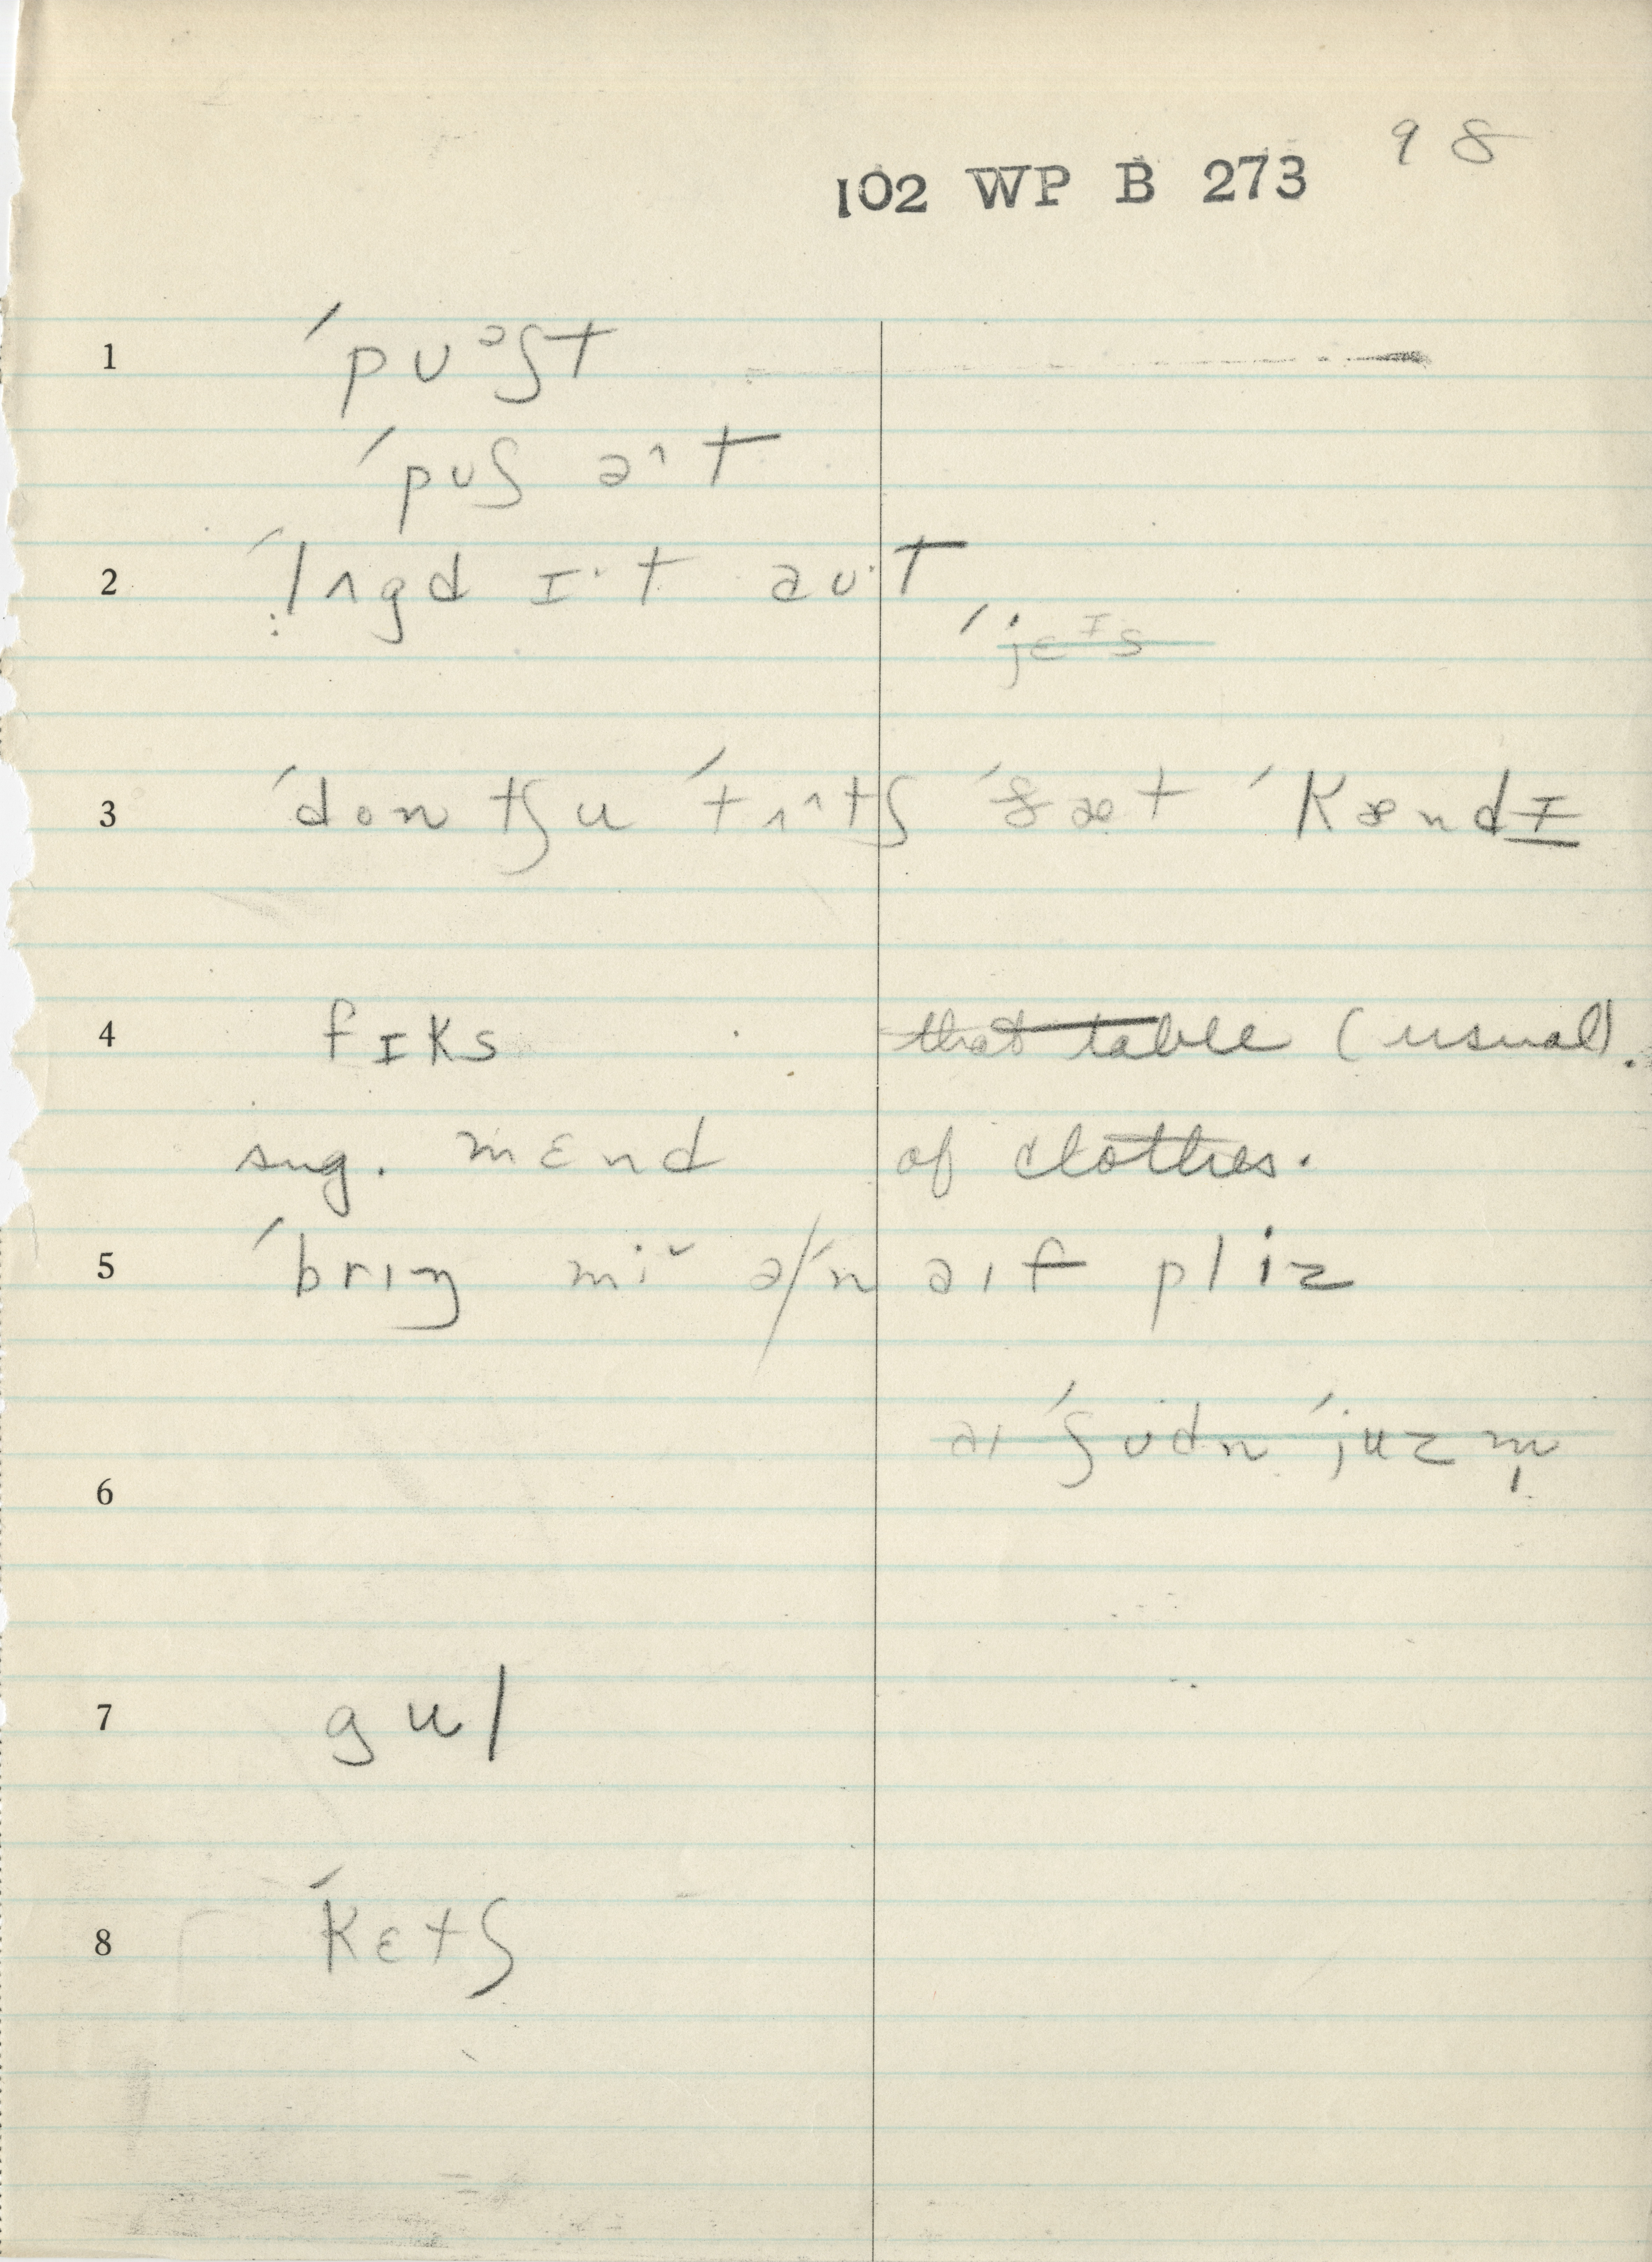 98
102 WP B 273
1 ˈpʊᵊʃt
ˈpʊʃ a^t
2 ˈlʌgd ɪ·t aʊ·t
ˈjɛᶦs
3 ˈdontʃu ˈtʌ^tʃ ˈðæt ˈkændɪ
4 fɪks that table (usual).
sug. mɛnd of clothes.
5 ˈbrɪŋ mi˘ ə/ˈn aɪf pliz
aɪ ˈʃʊdn ˈjuz m̩
6
7 gul
8 ˈkɛtʃ